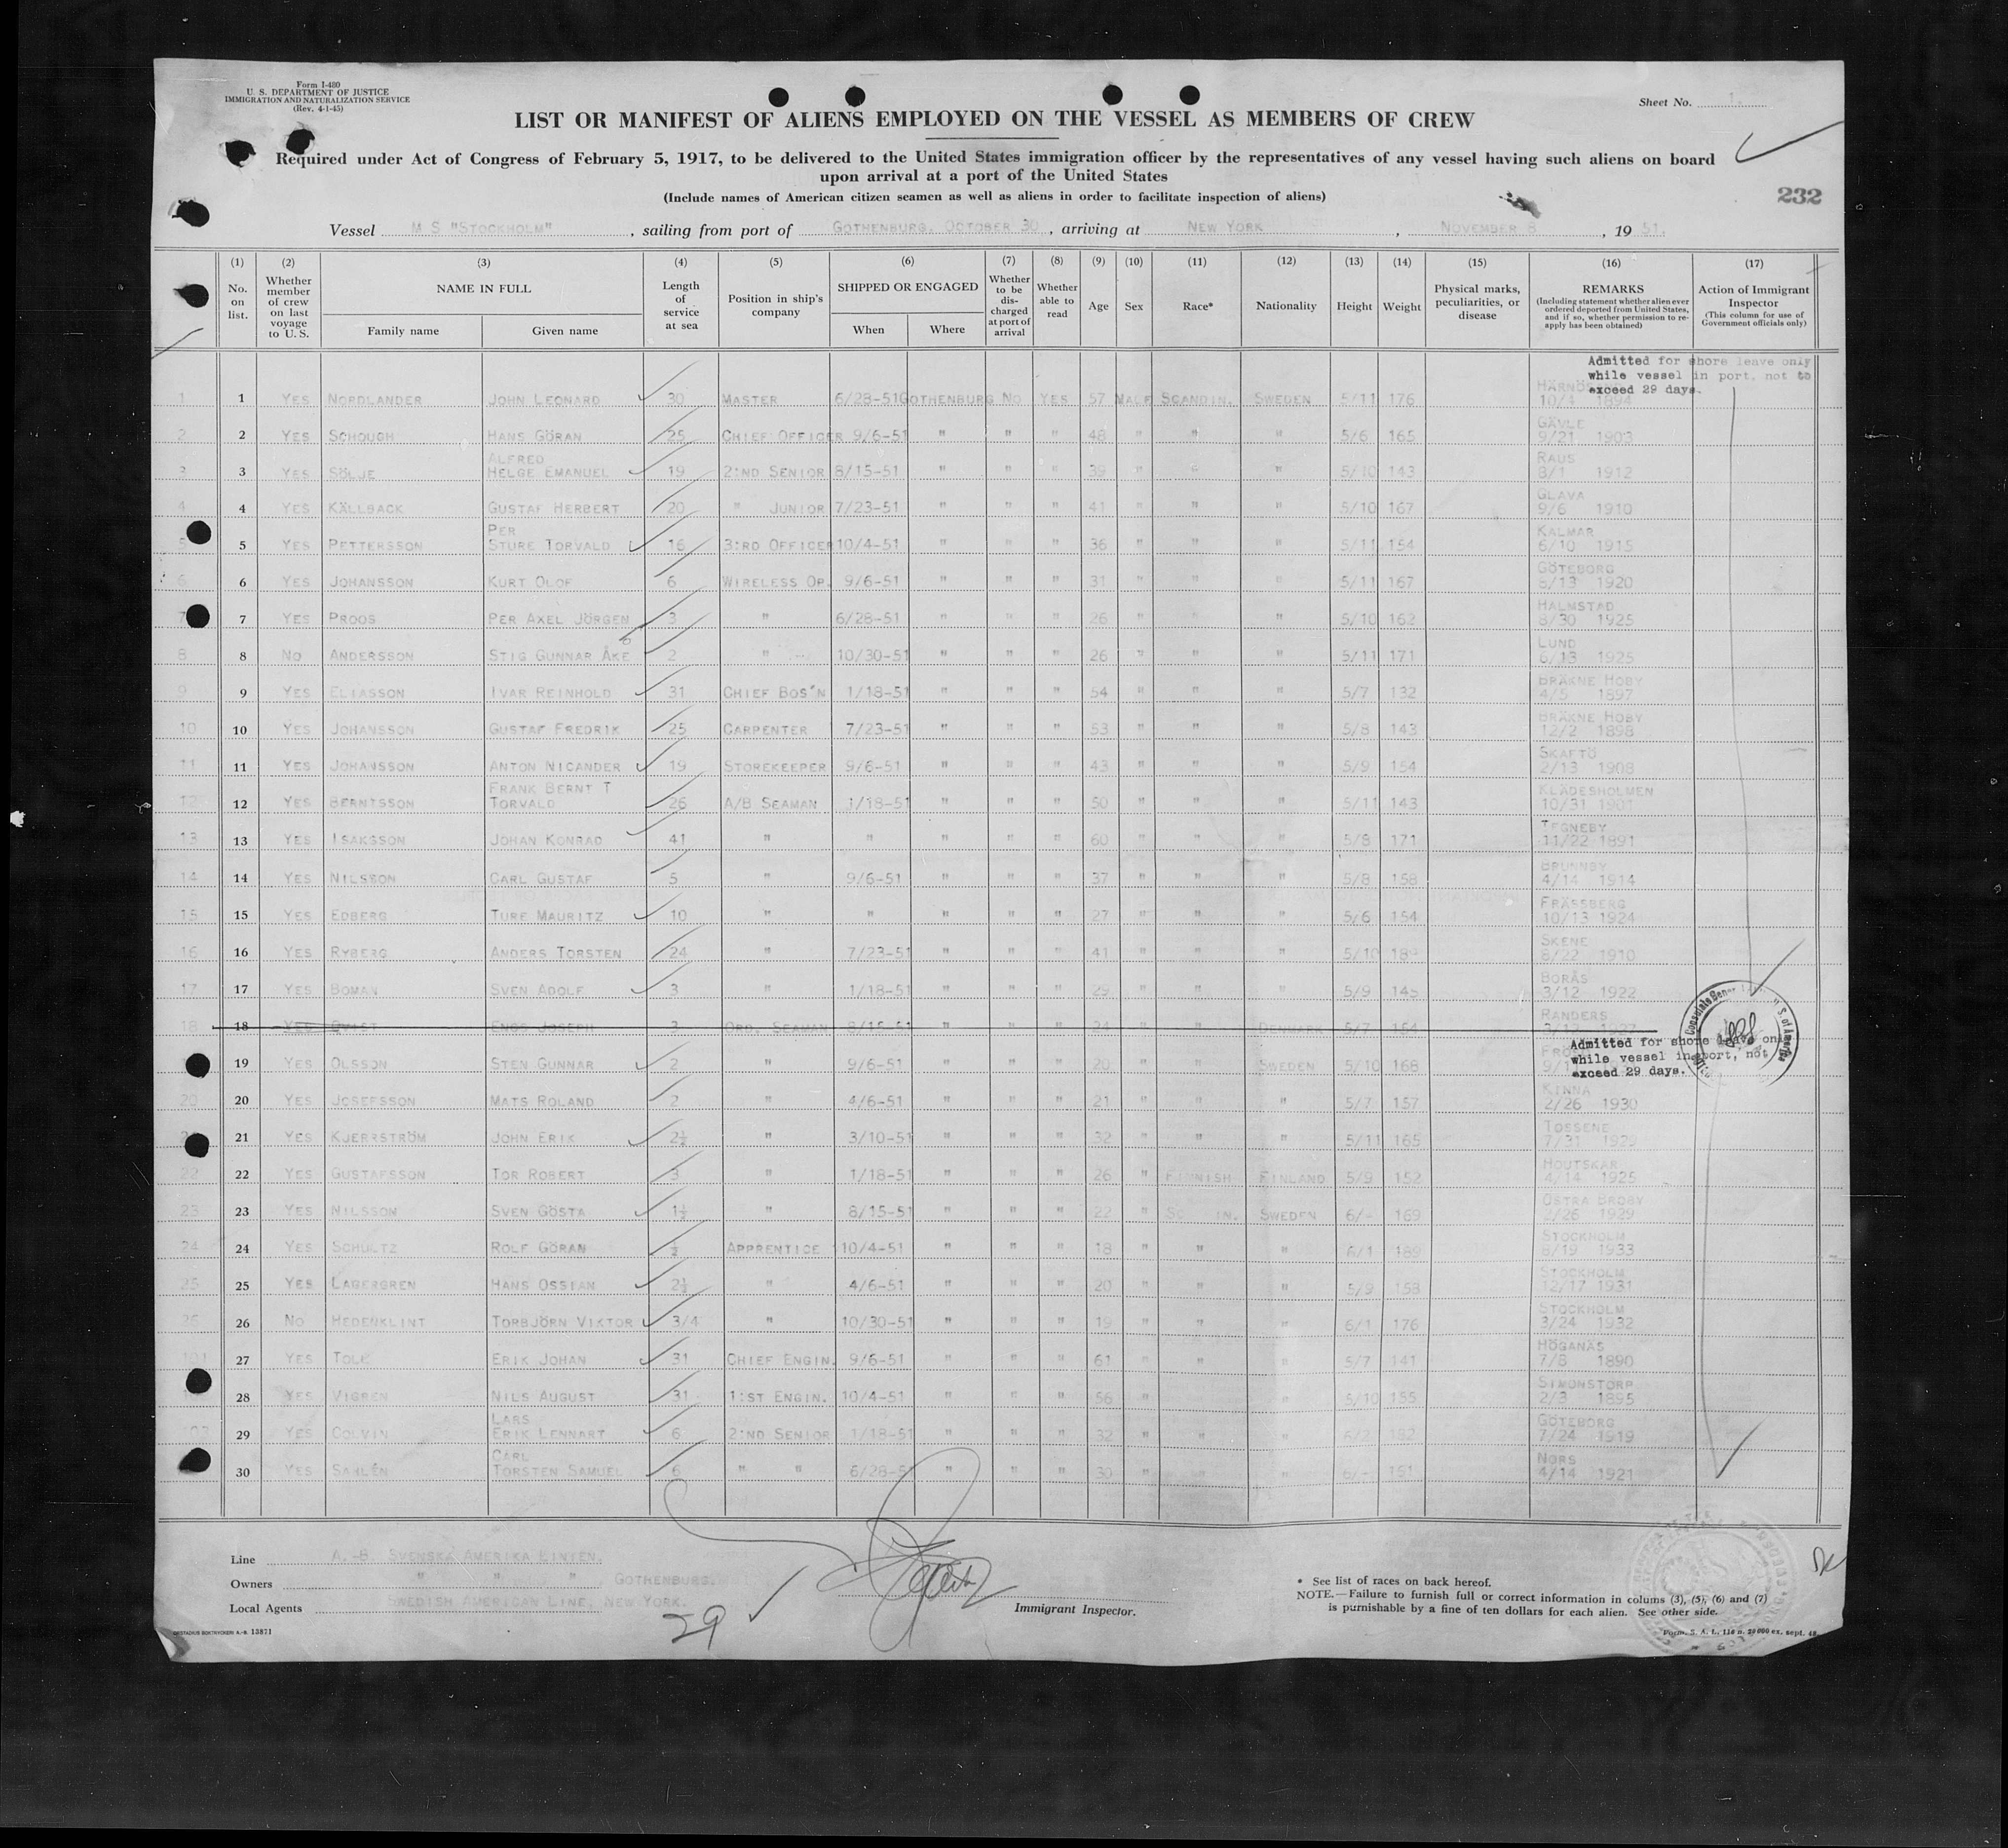 Form I-480
U. S. DEPARTMENT OF JUSTICE
IMMIGRATION AND NATURALIZATION SERVICE
(Rev. 4-1-45)
Sheet No. 1.
LIST OR MANIFEST OF ALIENS EMPLOYED ON THE VESSEL AS MEMBERS OF CREW
Required under Act of Congress of February 5, 1917, to be delivered to the United States immigration officer by the representatives of any vessel having such aliens on board
upon arrival at a port of the United States
(Include names of American citizen seamen as well as aliens in order to facilitate inspection of aliens)
232
Vessel M S "STOCKHOLM", sailing from port of GOTHENBURG, OCTOBER 30, arriving at NEW YORK, NOVEMBER 8, 19 51.
(1) No. on list. (2) Whether member of crew on last voyage to U. S. (3) NAME IN FULL Family name Given name (4) Length of service at sea (5) Position in ship's company (6) SHIPPED OR ENGAGED When Where (7) Whether to be discharged at port of arrival (8) Whether able to read (9) Age (10) Sex (11) Race* (12) Nationality (13) Height (14) Weight (15) Physical marks, peculiarities, or disease (16) REMARKS (Including statement whether alien ever ordered deported from United States, and if so, whether permission to re-apply has been obtained) (17) Action of Immigrant Inspector (This column for use of Government officials only)
Admitted for shore leave only
while vessel in port, not to
exceed 29 days.
1 1 YES NORDLANDER JOHN LEONARD 30 MASTER 6/28-51 GOTHENBURG NO YES 57 MALE SCANDIN. SWEDEN 5/11 176 10/4 1894
2 2 YES SCHOUGH HANS GÖRAN 25 CHIEF OFFICER 9/6-51 " " " 48 " " " 5/6 165 GÄVLE 9/21 1903
3 3 YES SÖLJE ALFRED HELGE EMANUEL 19 2:ND SENIOR 8/15-51 " " " 39 " " " 5/10 143 RAUS 8/1 1912
4 4 YES KÄLLBACK GUSTAF HERBERT 20 " JUNIOR 7/23-51 " " " 41 " " " 5/10 167 GLAVA 9/6 1910
5 5 YES PETTERSSON PER STURE TORVALD 16 3:RD OFFICER 10/4-51 " " " 36 " " " 5/11 154 KALMAR 6/10 1915
6 6 YES JOHANSSON KURT OLOF 6 WIRELESS OP. 9/6-51 " " " 31 " " " 5/11 167 GÖTEBORG 8/13 1920
7 7 YES PROOS PER AXEL JÖRGEN 3 " 6/28-51 " " " 26 " " " 5/10 162 HALMSTAD 8/30 1925
8 8 NO ANDERSSON STIG GUNNAR ÅKE 2 " 10/30-51 " " " 26 " " " 5/11 171 LUND 6/13 1925
9 9 YES ELIASSON IVAR REINHOLD 31 CHIEF BOS'N 1/18-51 " " " 54 " " " 5/7 132 BRÄKNE HOBY 4/5 1897
10 10 YES JOHANSSON GUSTAF FREDRIK 25 CARPENTER 7/23-51 " " " 53 " " " 5/8 143 BRÄKNE HOBY 12/2 1898
11 11 YES JOHANSSON ANTON NICANDER 19 STOREKEEPER 9/6-51 " " " 43 " " " 5/9 154 SKAFTÖ 2/13 1908
12 12 YES BERNTSSON FRANK BERNT T TORVALD 26 A/B SEAMAN 1/18-51 " " " 50 " " " 5/11 143 KLÄDESHOLMEN 10/31 1901
13 13 YES ISAKSSON JOHAN KONRAD 41 " " " " " 60 " " " 5/8 171 TEGNEBY 11/22 1891
14 14 YES NILSSON CARL GUSTAF 5 " 9/6-51 " " " 37 " " " 5/8 158 BRUNNBY 4/14 1914
15 15 YES EDBERG TURE MAURITZ 10 " " " " " 27 " " " 5/6 154 FRÄSSBERG 10/13 1924
16 16 YES RYBERG ANDERS TORSTEN 24 " 7/23-51 " " " 41 " " " 5/10 SKENE 8/22 1910
17 17 YES BOMAN SVEN ADOLF 3 " 1/18-51 " " " 29 " " " 5/9 145 BORÅS 3/12 1922
18 18 YES JOSEPH 3 ORD. SEAMAN 8/15-51 " " " 24 " " DENMARK 5/7 154 RANDERS
Admitted for shore leave only
while vessel in port, not
exceed 29 days.
19 YES OLSSON STEN GUNNAR 2 " 9/6-51 " " " 20 " " SWEDEN 5/10 168
20 20 YES JOSEFSSON MATS ROLAND 2 " 4/6-51 " " " 21 " " " 5/7 157 KINNA 2/26 1930
21 YES KJERRSTRÖM JOHN ERIK 2½ " 3/10-51 " " " 32 " " " 5/11 165 TOSSENE 7/31
22 22 YES GUSTAFSSON TOR ROBERT 3 " 1/18-51 " " " 26 " FINNISH FINLAND 5/9 152 HOUTSKAR 4/14 1925
23 23 YES NILSSON SVEN GÖSTA 1½ " 8/15-51 " " " 22 " SWEDEN 6/- 169 ÖSTRA BROBY 2/26 1929
24 24 YES SCHULTZ ROLF GÖRAN ½ APPRENTICE 10/4-51 " " " 18 " " " 6/1 189 STOCKHOLM 8/19 1933
25 25 YES LAGERGREN HANS OSSIAN 2½ " 4/6-51 " " " 20 " " " 5/9 158 STOCKHOLM 12/17 1931
26 26 NO HEDENKLINT TORBJÖRN VIKTOR 3/4 " 10/30-51 " " " 19 " " " 6/1 176 STOCKHOLM 3/24 1932
27 YES ERIK JOHAN 31 CHIEF ENGIN. 9/6-51 " " " 61 " " " 5/7 141 HÖGANÄS 7/8 1890
28 YES VIGREN NILS AUGUST 31 1:ST ENGIN. 10/4-51 " " " 56 " " 5/10 SIMONSTORP 2/3 1895
29 YES COLVIN LARS ERIK LENNART 6 2:ND SENIOR 1/18-51 " " " 32 " " " 6/2 GÖTEBORG 7/24 1919
30 YES SAHLÉN CARL TORSTEN SAMUEL 6 " " 6/28-51 " " " 30 " " 6/- 151 NORS 4/14 1921
Line A.-B. SVENSKA AMERIKA LINIEN.
Owners " " ", GOTHENBURG.
Local Agents SWEDISH AMERICAN LINE, NEW YORK.
29
Immigrant Inspector.
* See list of races on back hereof.
NOTE.—Failure to furnish full or correct information in colums (3), (5), (6) and (7)
is purnishable by a fine of ten dollars for each alien. See other side.
BOKTRYCKERI A.-B. 13871
Form. S. A. L. 116 n. 20000 ex. sept. 48.